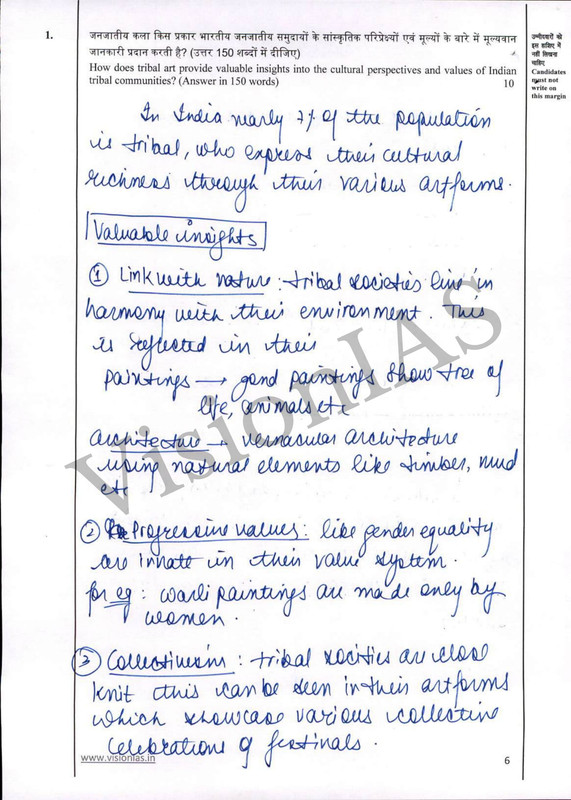 1.
जनजातीय कला किस प्रकार भारतीय जनजातीय समुदायों के सांस्कृतिक परिप्रेक्ष्यों एवं मूल्यों के बारे में मूल्यवान
जानकारी प्रदान करती है? (उत्तर 150 शब्दों में दीजिए)
How does tribal art provide valuable insights into the cultural perspectives and values of Indian
tribal communities? (Answer in 150 words)
10
उम्मीदवारों को
इस हाशिए में
नहीं लिखना
चाहिए
Candidates
must not
write on
this margin
In India nearly 7% of the population
is tribal, who express their cultural
richness through their various artforms.
Valuable insights
① Link with nature : tribal societies live in
harmony with their environment. This
is reflected in their
paintings → gond paintings show tree of
life, animals etc
architecture → vernacular architecture
using natural elements like timber, mud
etc
② Progressive values : like gender equality
are innate in their value system.
for eg : warli paintings are made only by
women.
③ Collectivism : tribal socities are close
knit this can be seen in their artforms
which showcase various collective
celebrations of festivals.
VisionIAS
www.visionias.in
6